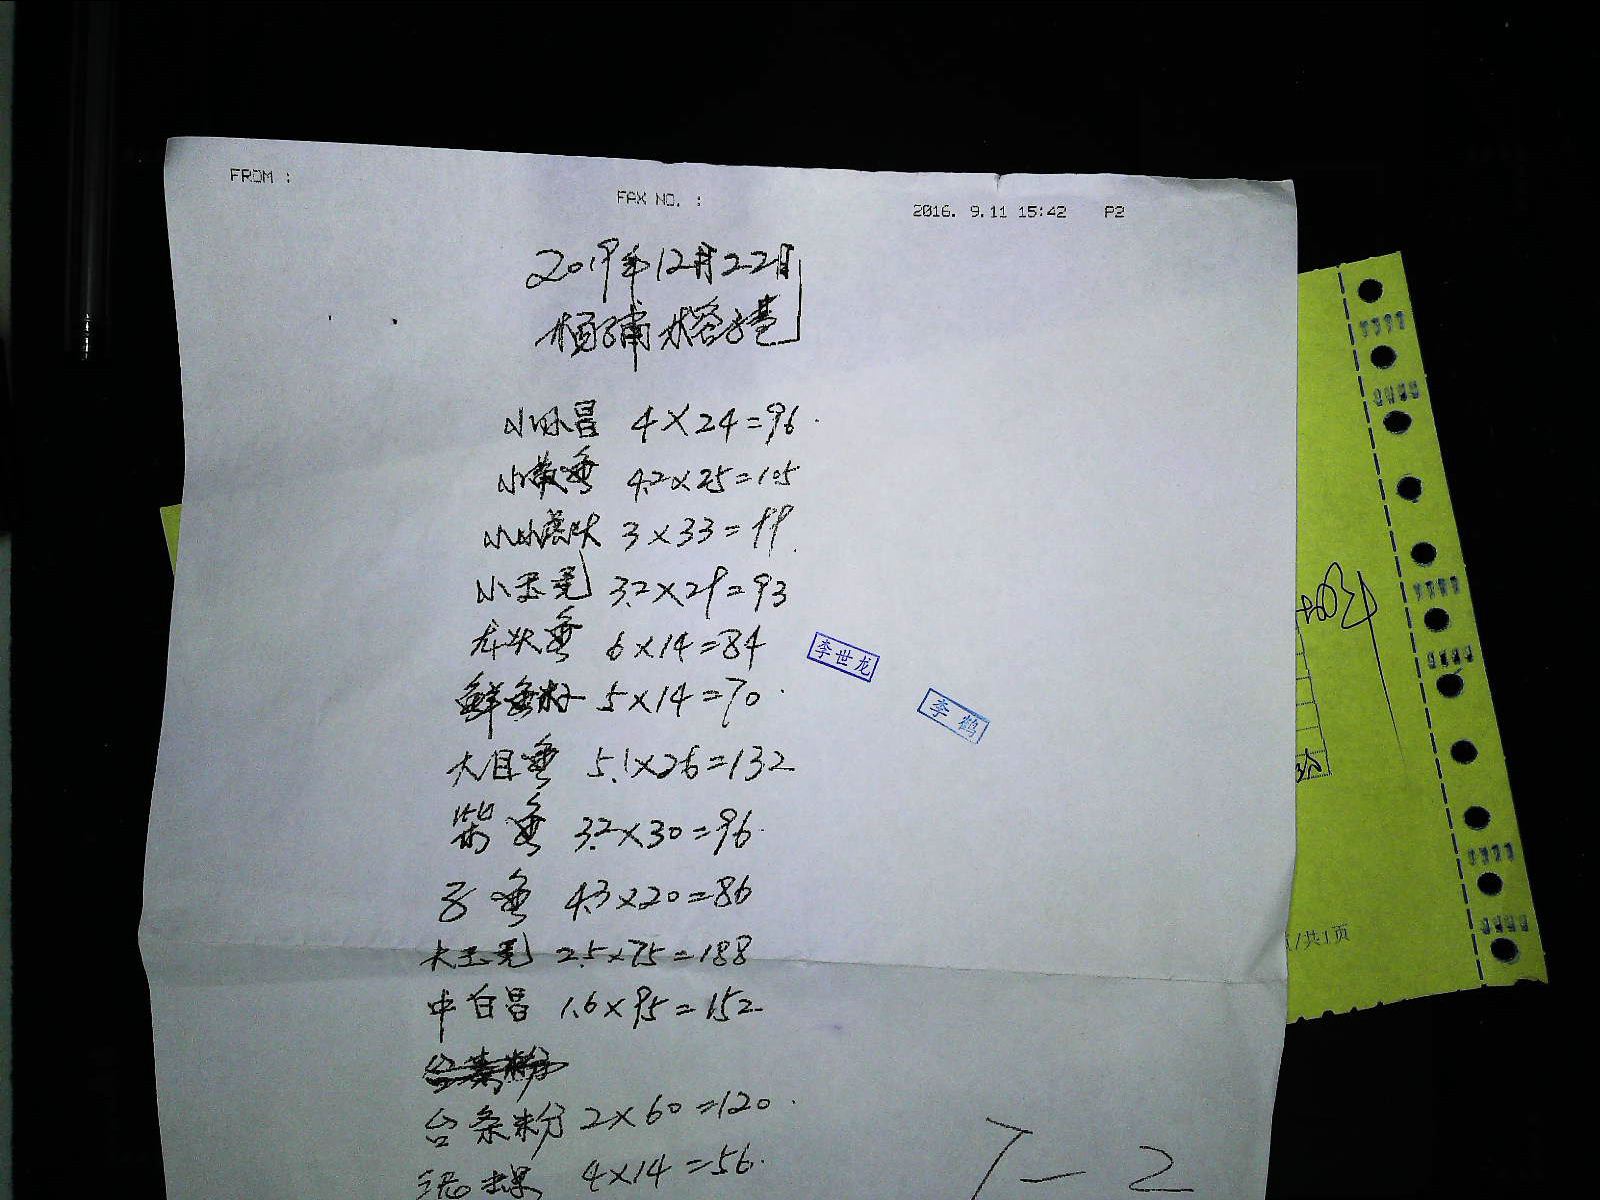 FROM :
FAX NO. :
2016. 9.11 15:42 P2
2019年12月22日
杨浦
小 昌 4×24=96
小黄鱼 4.2×25=105
小 3×33=99
小王 3.2×29=93
龙头鱼 6×14=84
鲜鱼籽 5×14=70
大目鱼 5.1×26=132
柴鱼 3.2×30=96
子鱼 4.3×20=86
大王 2.5×75=188
中白昌 1.6×95=152
台条粉 2×60=120
螺 4×14=56
李世龙
李鹤
1-2
/共1页